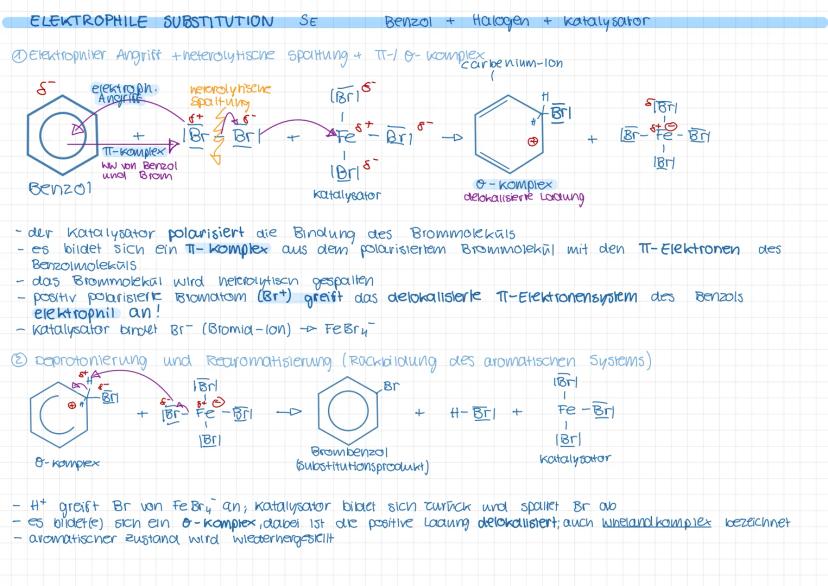 ELEKTROPHILE SUBSTITUTION SE Benzol + Halogen + Katalysator
① Elektrophiler Angriff + heterolytische Spaltung + π-/ σ-Komplex
Carbenium-Ion
δ⁻ elektroph. Angriff heterolytische Spaltung
|Br| δ⁻
H
δ |Br|
+ |Br – Br| + Fe – Br| δ⁻ → Br| + |Br – Fe – Br|
δ⁺ δ⁻ δ⁺ H ⊕ δ⁺ ⊖
π-Komplex
WW von Benzol und Brom
|Br| δ⁻
|Br|
Benzol
Katalysator
σ-Komplex
delokalisierte Ladung
- der Katalysator polarisiert die Bindung des Brommoleküls
- es bildet sich ein π-Komplex aus dem polarisiertem Brommolekül mit den π-Elektronen des
Benzolmoleküls
- das Brommolekül wird heterolytisch gespalten
- positiv polarisierte Bromatom (Br⁺) greift das delokalisierte π-Elektronensystem des Benzols
elektrophil an!
- Katalysator bindet Br⁻ (Bromid-Ion) → FeBr₄⁻
② Deprotonierung und Rearomatisierung (Rückbildung des aromatischen Systems)
δ⁺ H δ⁻ Br| ⊕ + δ⁻ |Br – Fe – Br| δ⁺ ⊖ → Br + H-Br| + Fe – Br|
|Br|
|Br|
|Br|
|Br|
σ-Komplex
Brombenzol
(Substitutionsprodukt)
Katalysator
- H⁺ greift Br von FeBr₄⁻ an; Katalysator bildet sich zurück und spaltet Br ab
- es bildet(e) sich ein σ-Komplex, dabei ist die positive Ladung delokalisiert; auch Whelandkomplex bezeichnet
- aromatischer Zustand wird wiederhergestellt